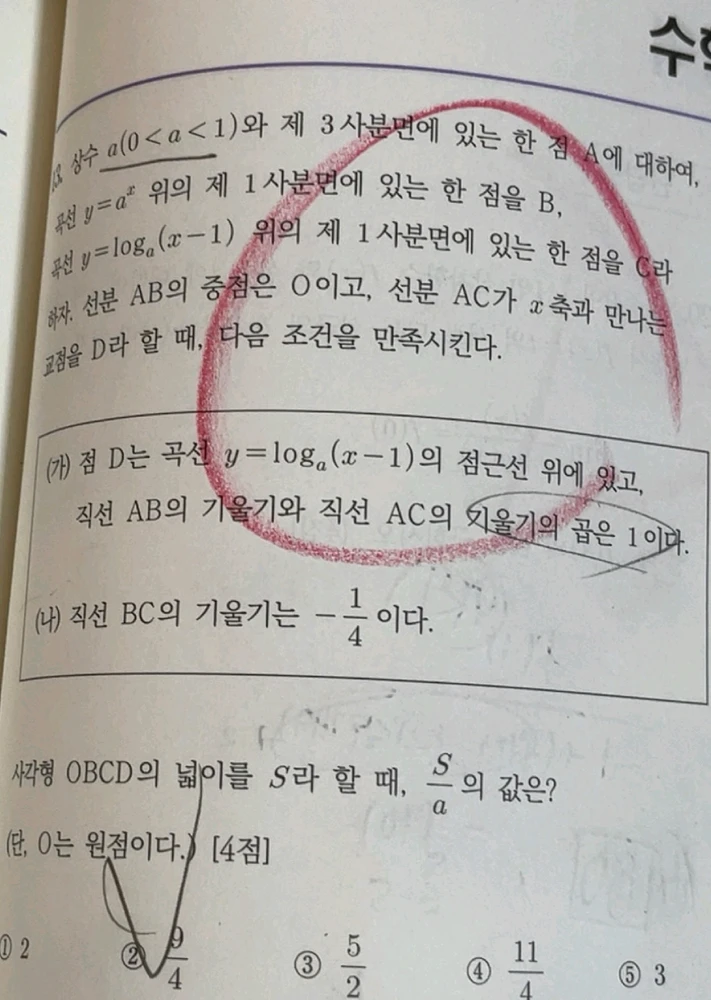 수학
13. 상수 a(0<a<1)와 제 3사분면에 있는 한 점 A에 대하여,
곡선 y=a^x 위의 제 1사분면에 있는 한 점을 B,
곡선 y=log_a(x-1) 위의 제 1사분면에 있는 한 점을 C라
하자. 선분 AB의 중점은 O이고, 선분 AC가 x축과 만나는
교점을 D라 할 때, 다음 조건을 만족시킨다.
(가) 점 D는 곡선 y=log_a(x-1)의 점근선 위에 있고,
직선 AB의 기울기와 직선 AC의 기울기의 곱은 1이다.
(나) 직선 BC의 기울기는 -1/4 이다.
사각형 OBCD의 넓이를 S라 할 때, S/a의 값은?
(단, O는 원점이다.) [4점]
① 2 ② 9/4 ③ 5/2 ④ 11/4 ⑤ 3